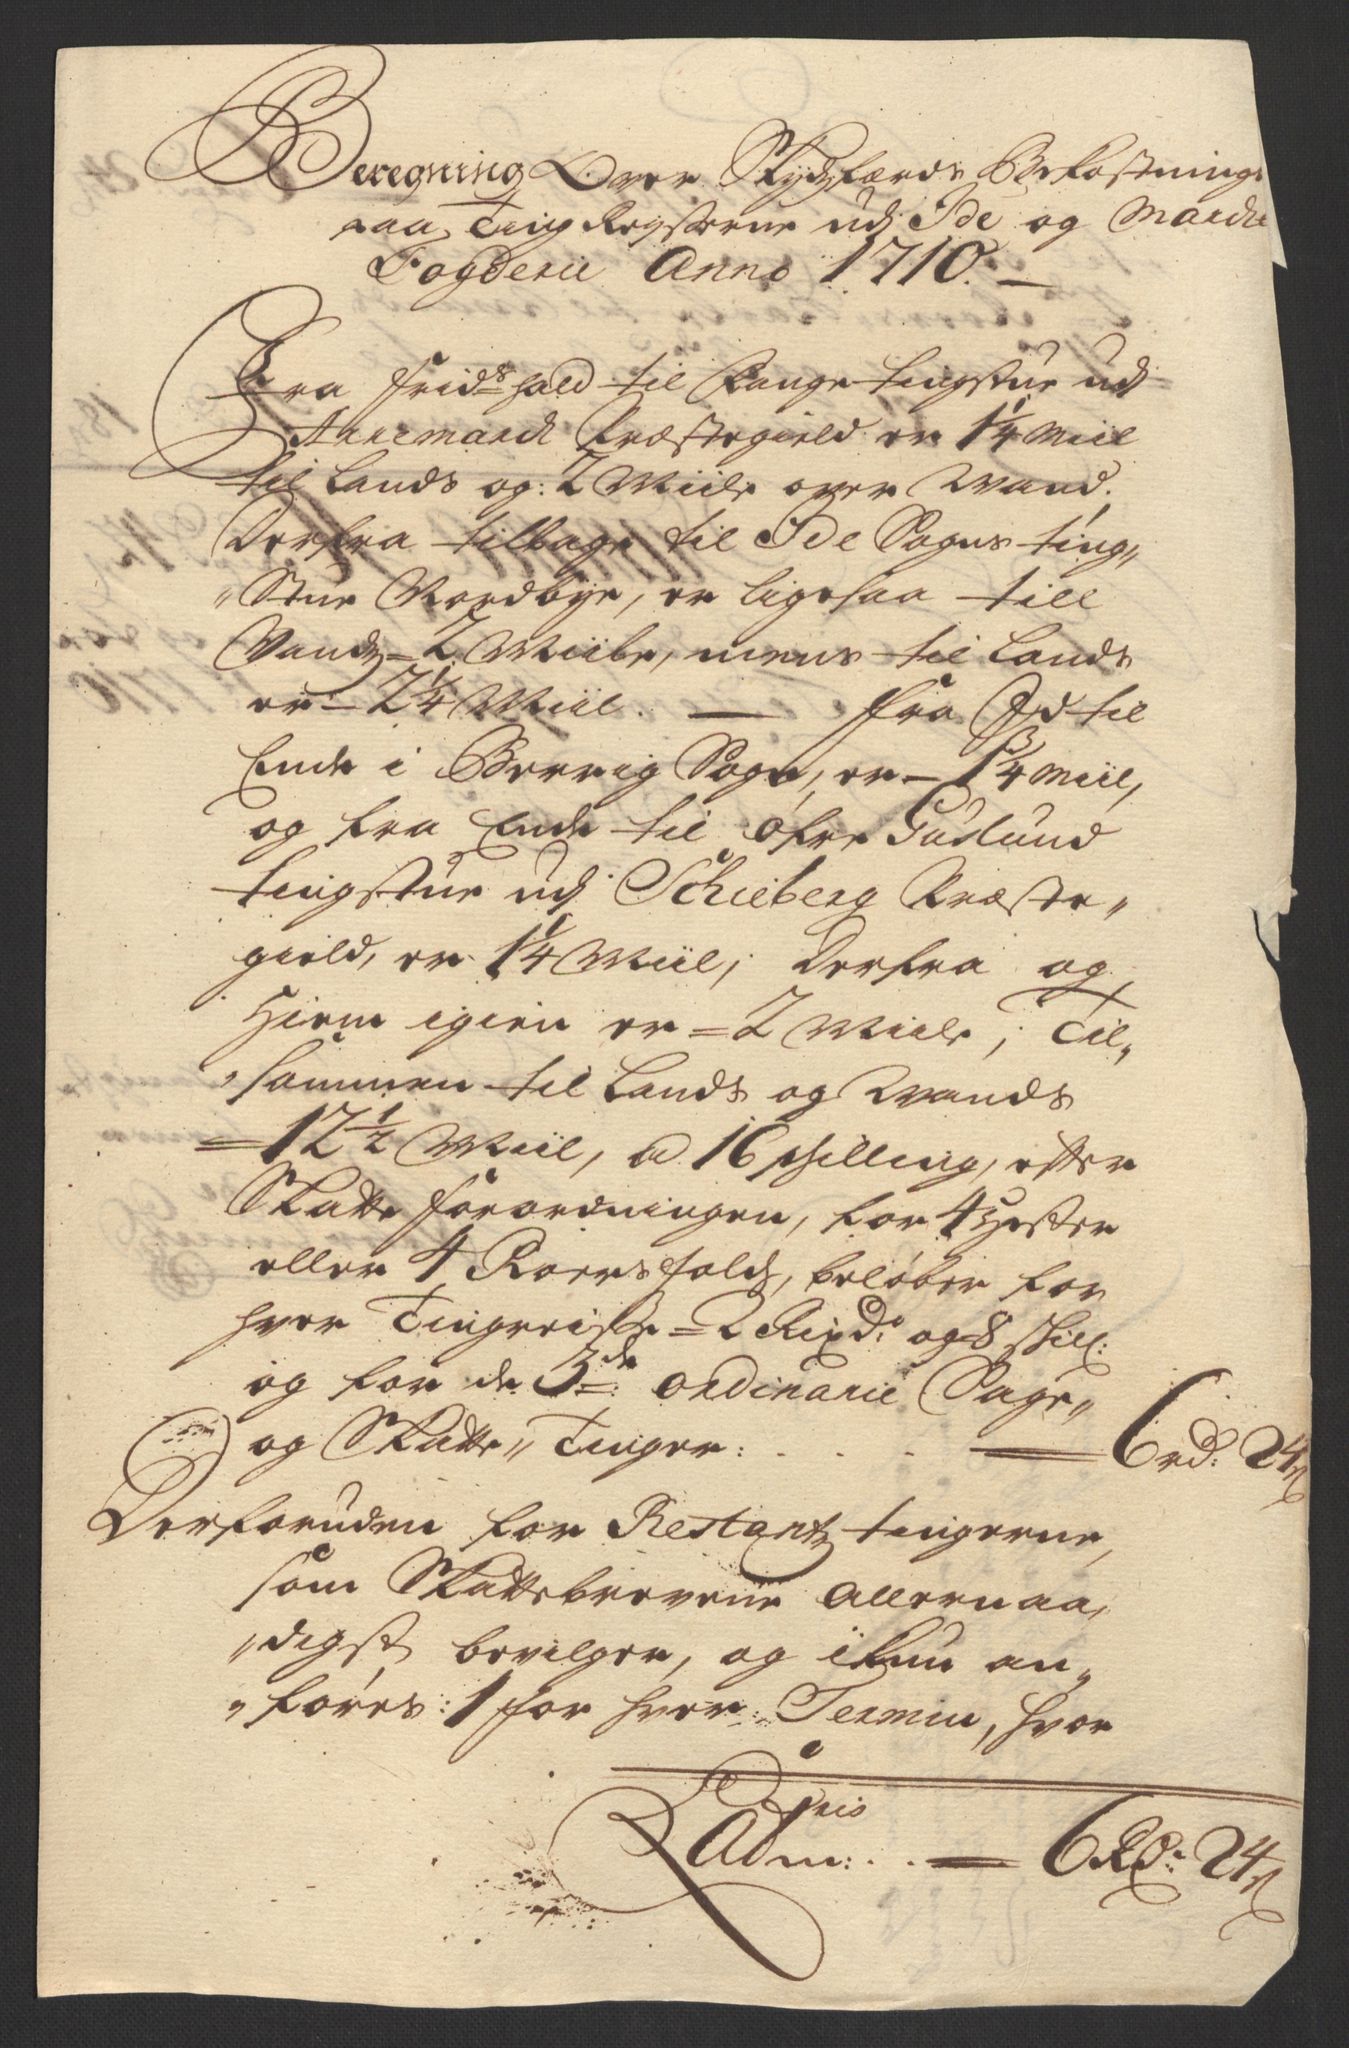 Beregning Over Skydsfærds Bekostninge
paa Ting Reyserne udj Ide og Marche
Fogderie Anno 1710. —
Fra Frid:hald til Bange tingstue udj
Aremarch Præstegield er 1 1/4 Miil
til Lands og: 2 Miile over Wand.
Derfra tilbage til Ide Sogns ting„
„Stue Nordbye, er ligesaa till
Vandz = 2 Miile, mens til Lands
er — 2 1/4 Miil. — fra Id til
Ende i Berrig Sogn, er — 1 3/4 Miil,
og fra Ende til øfre Gudlund
tingstue udj Schieberg Præste„
gield, er 1 1/4 Miil; Derfra og
Hiem igien er = 2 Miile; Til„
„sammen til Lands og Wands
= 12 1/2 Miil, a 16 skilling, efter
Skatte forordningen, for 4 Hester
eller 4 Roers hold, beløber for
hver Tingreise = 2 Rixd: og 8 skill:
og for de 3de: ordinarie Sage„
og Skatte„ Tinger: . . . . — 6 rd: 24 s
Derforuden for Restantz tingerne,
som Skattebrevene Allernaa„
„digst bevilger, og ikun an„
„føres: 1 for hver Termin, hvor
Ladm: . . — 6 Rd: 24 s